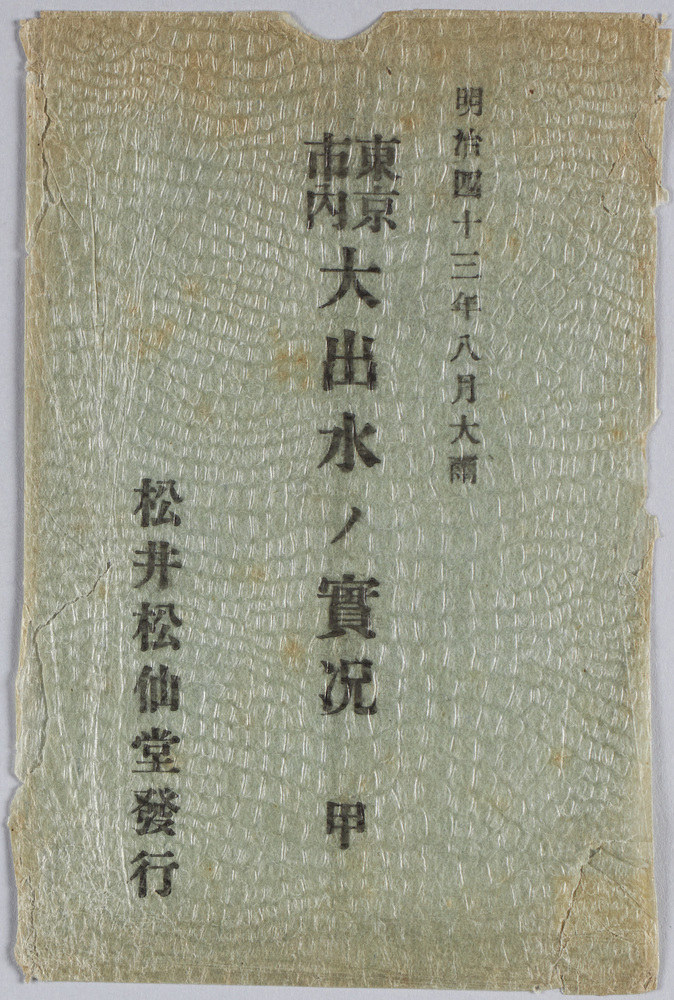 明治四十三年八月大雨
東京市内大出水ノ實况 甲
松井松仙堂發行